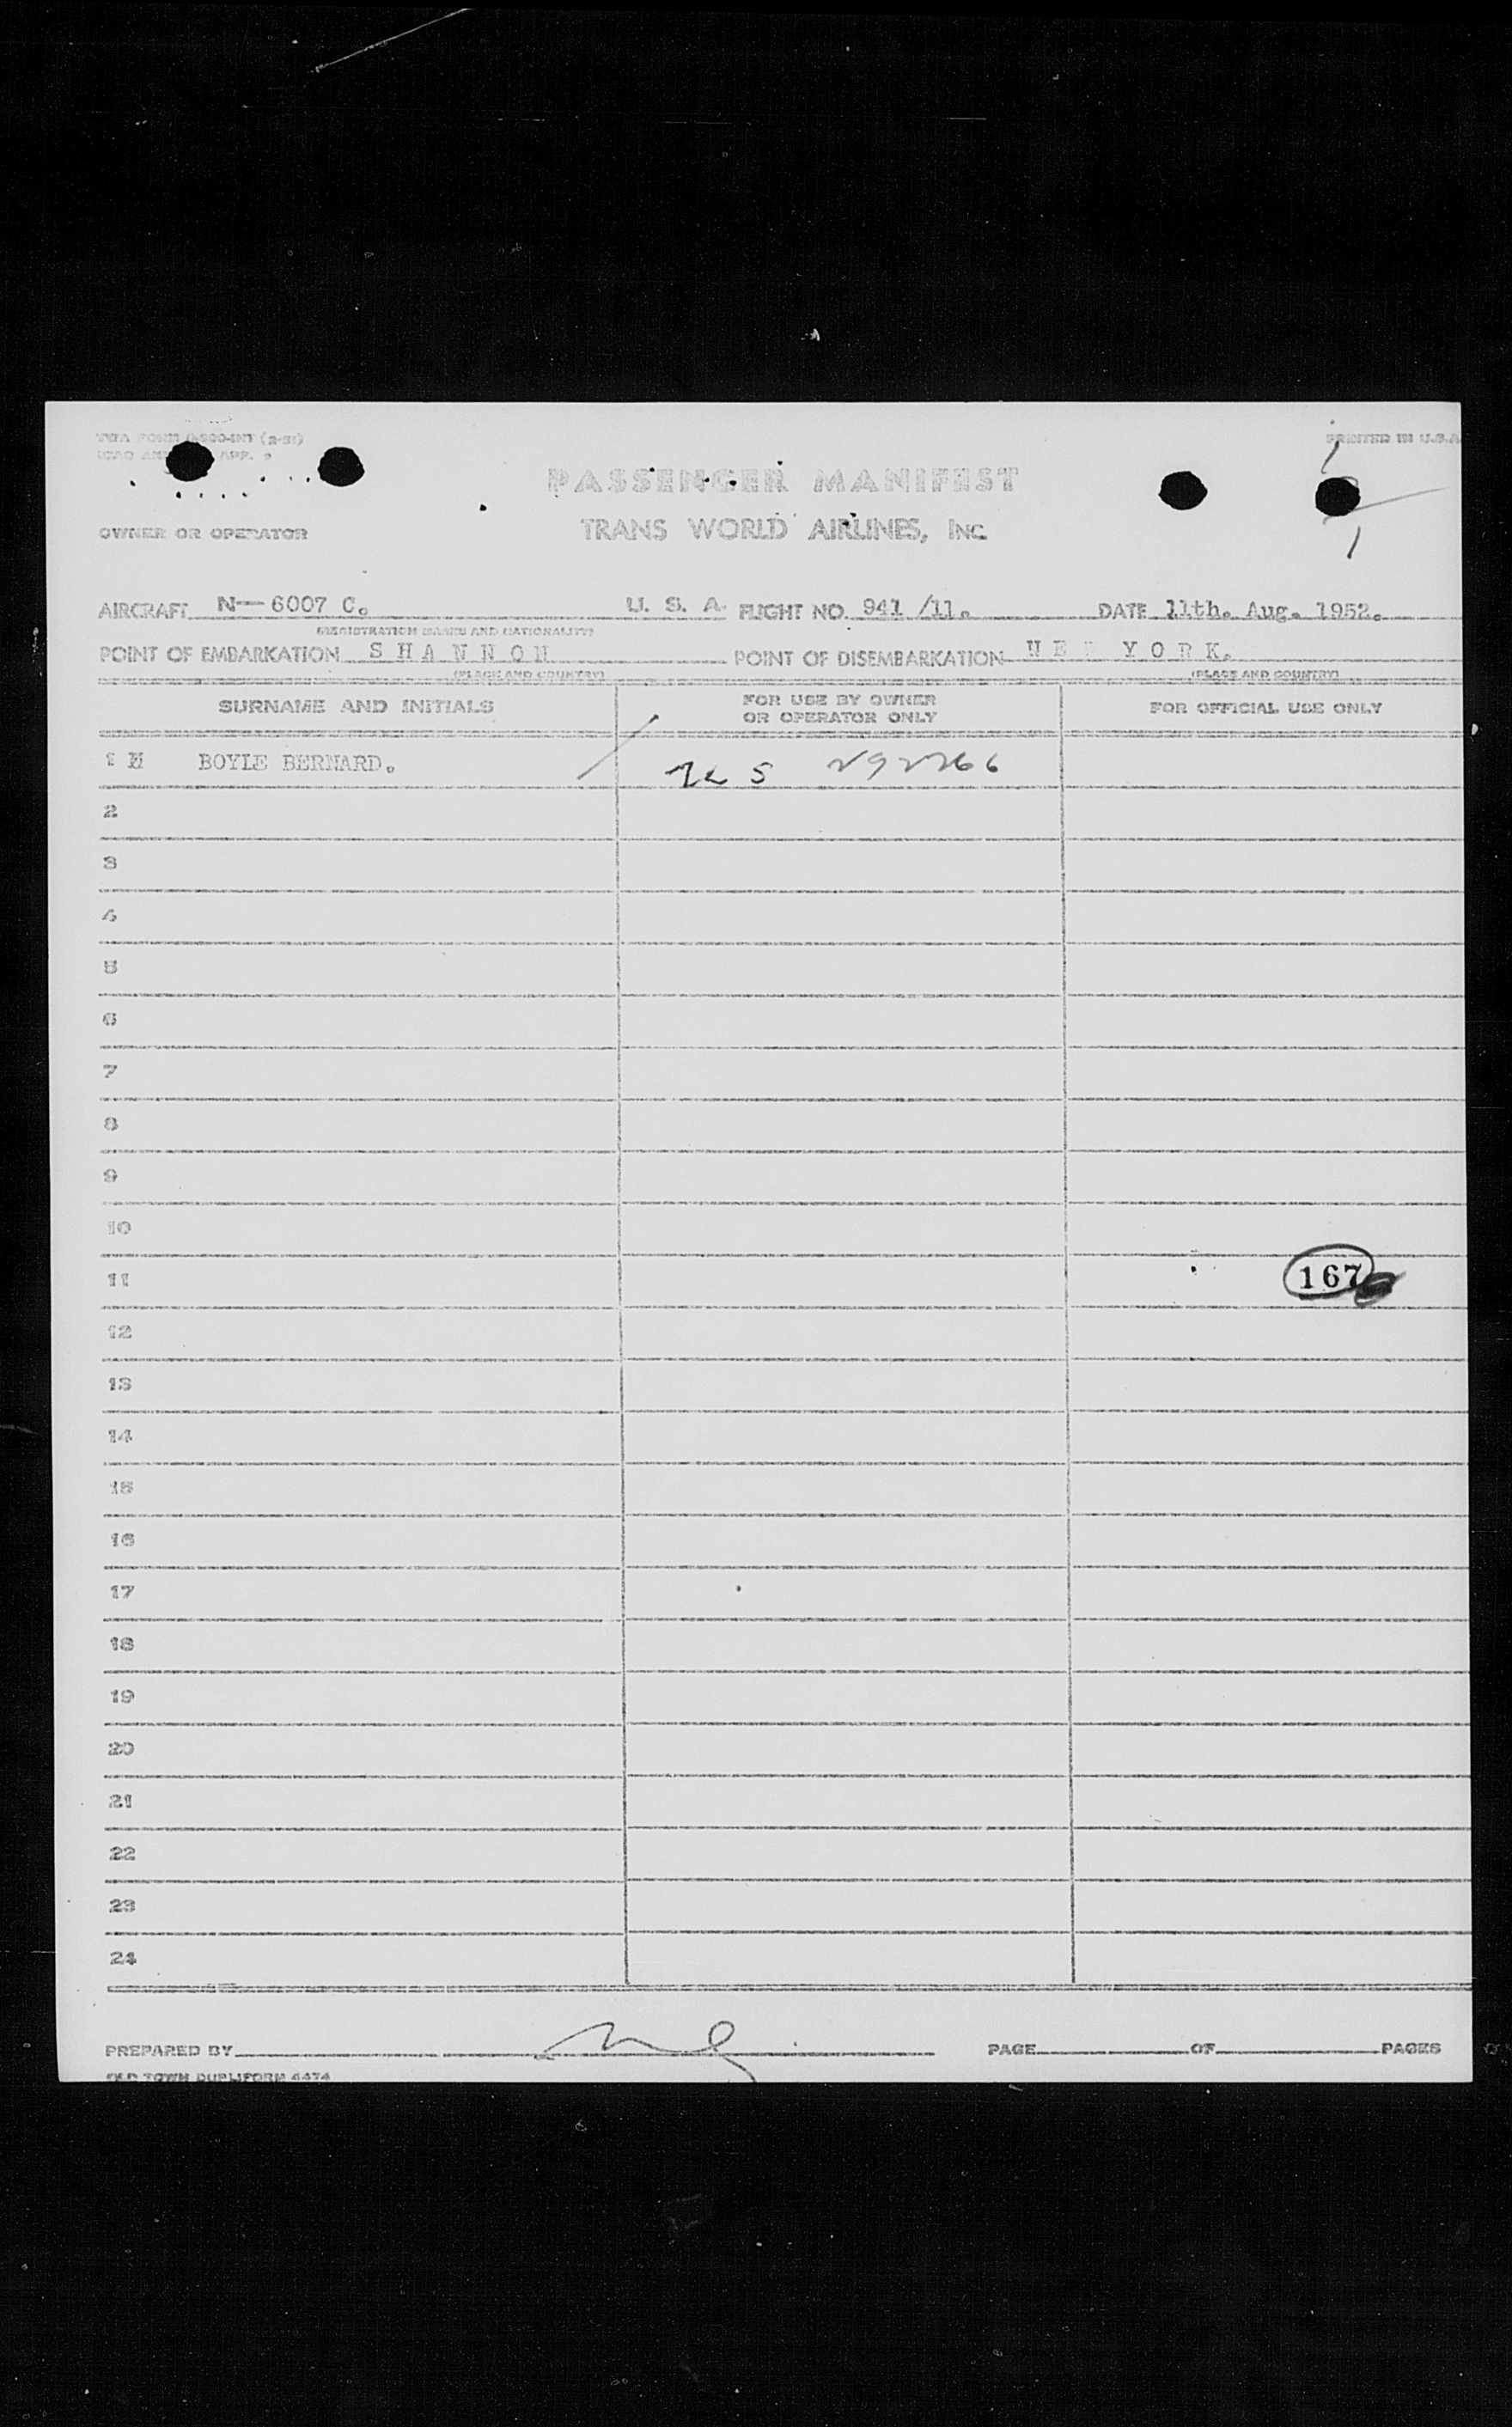 PRINTED IN U.S.A
PASSENGER MANIFEST
OWNER OR OPERATOR TRANS WORLD AIRLINES, INC.
AIRCRAFT N-6007 C. U. S. A. FLIGHT NO. 941 /11. DATE 11th. Aug. 1952.
(REGISTRATION MARKS AND NATIONALITY)
POINT OF EMBARKATION S H A N N O N POINT OF DISEMBARKATION N E W Y O R K.
(PLACE AND COUNTRY) (PLACE AND COUNTRY)
SURNAME AND INITIALS FOR USE BY OWNER OR OPERATOR ONLY FOR OFFICIAL USE ONLY
1 M BOYLE BERNARD. 5 292266
2
3
4
5
6
7
8
9
10
11 167
12
13
14
15
16
17
18
19
20
21
22
23
24
PREPARED BY PAGE OF PAGES
OLD TOWN DUPLIFORM 4474